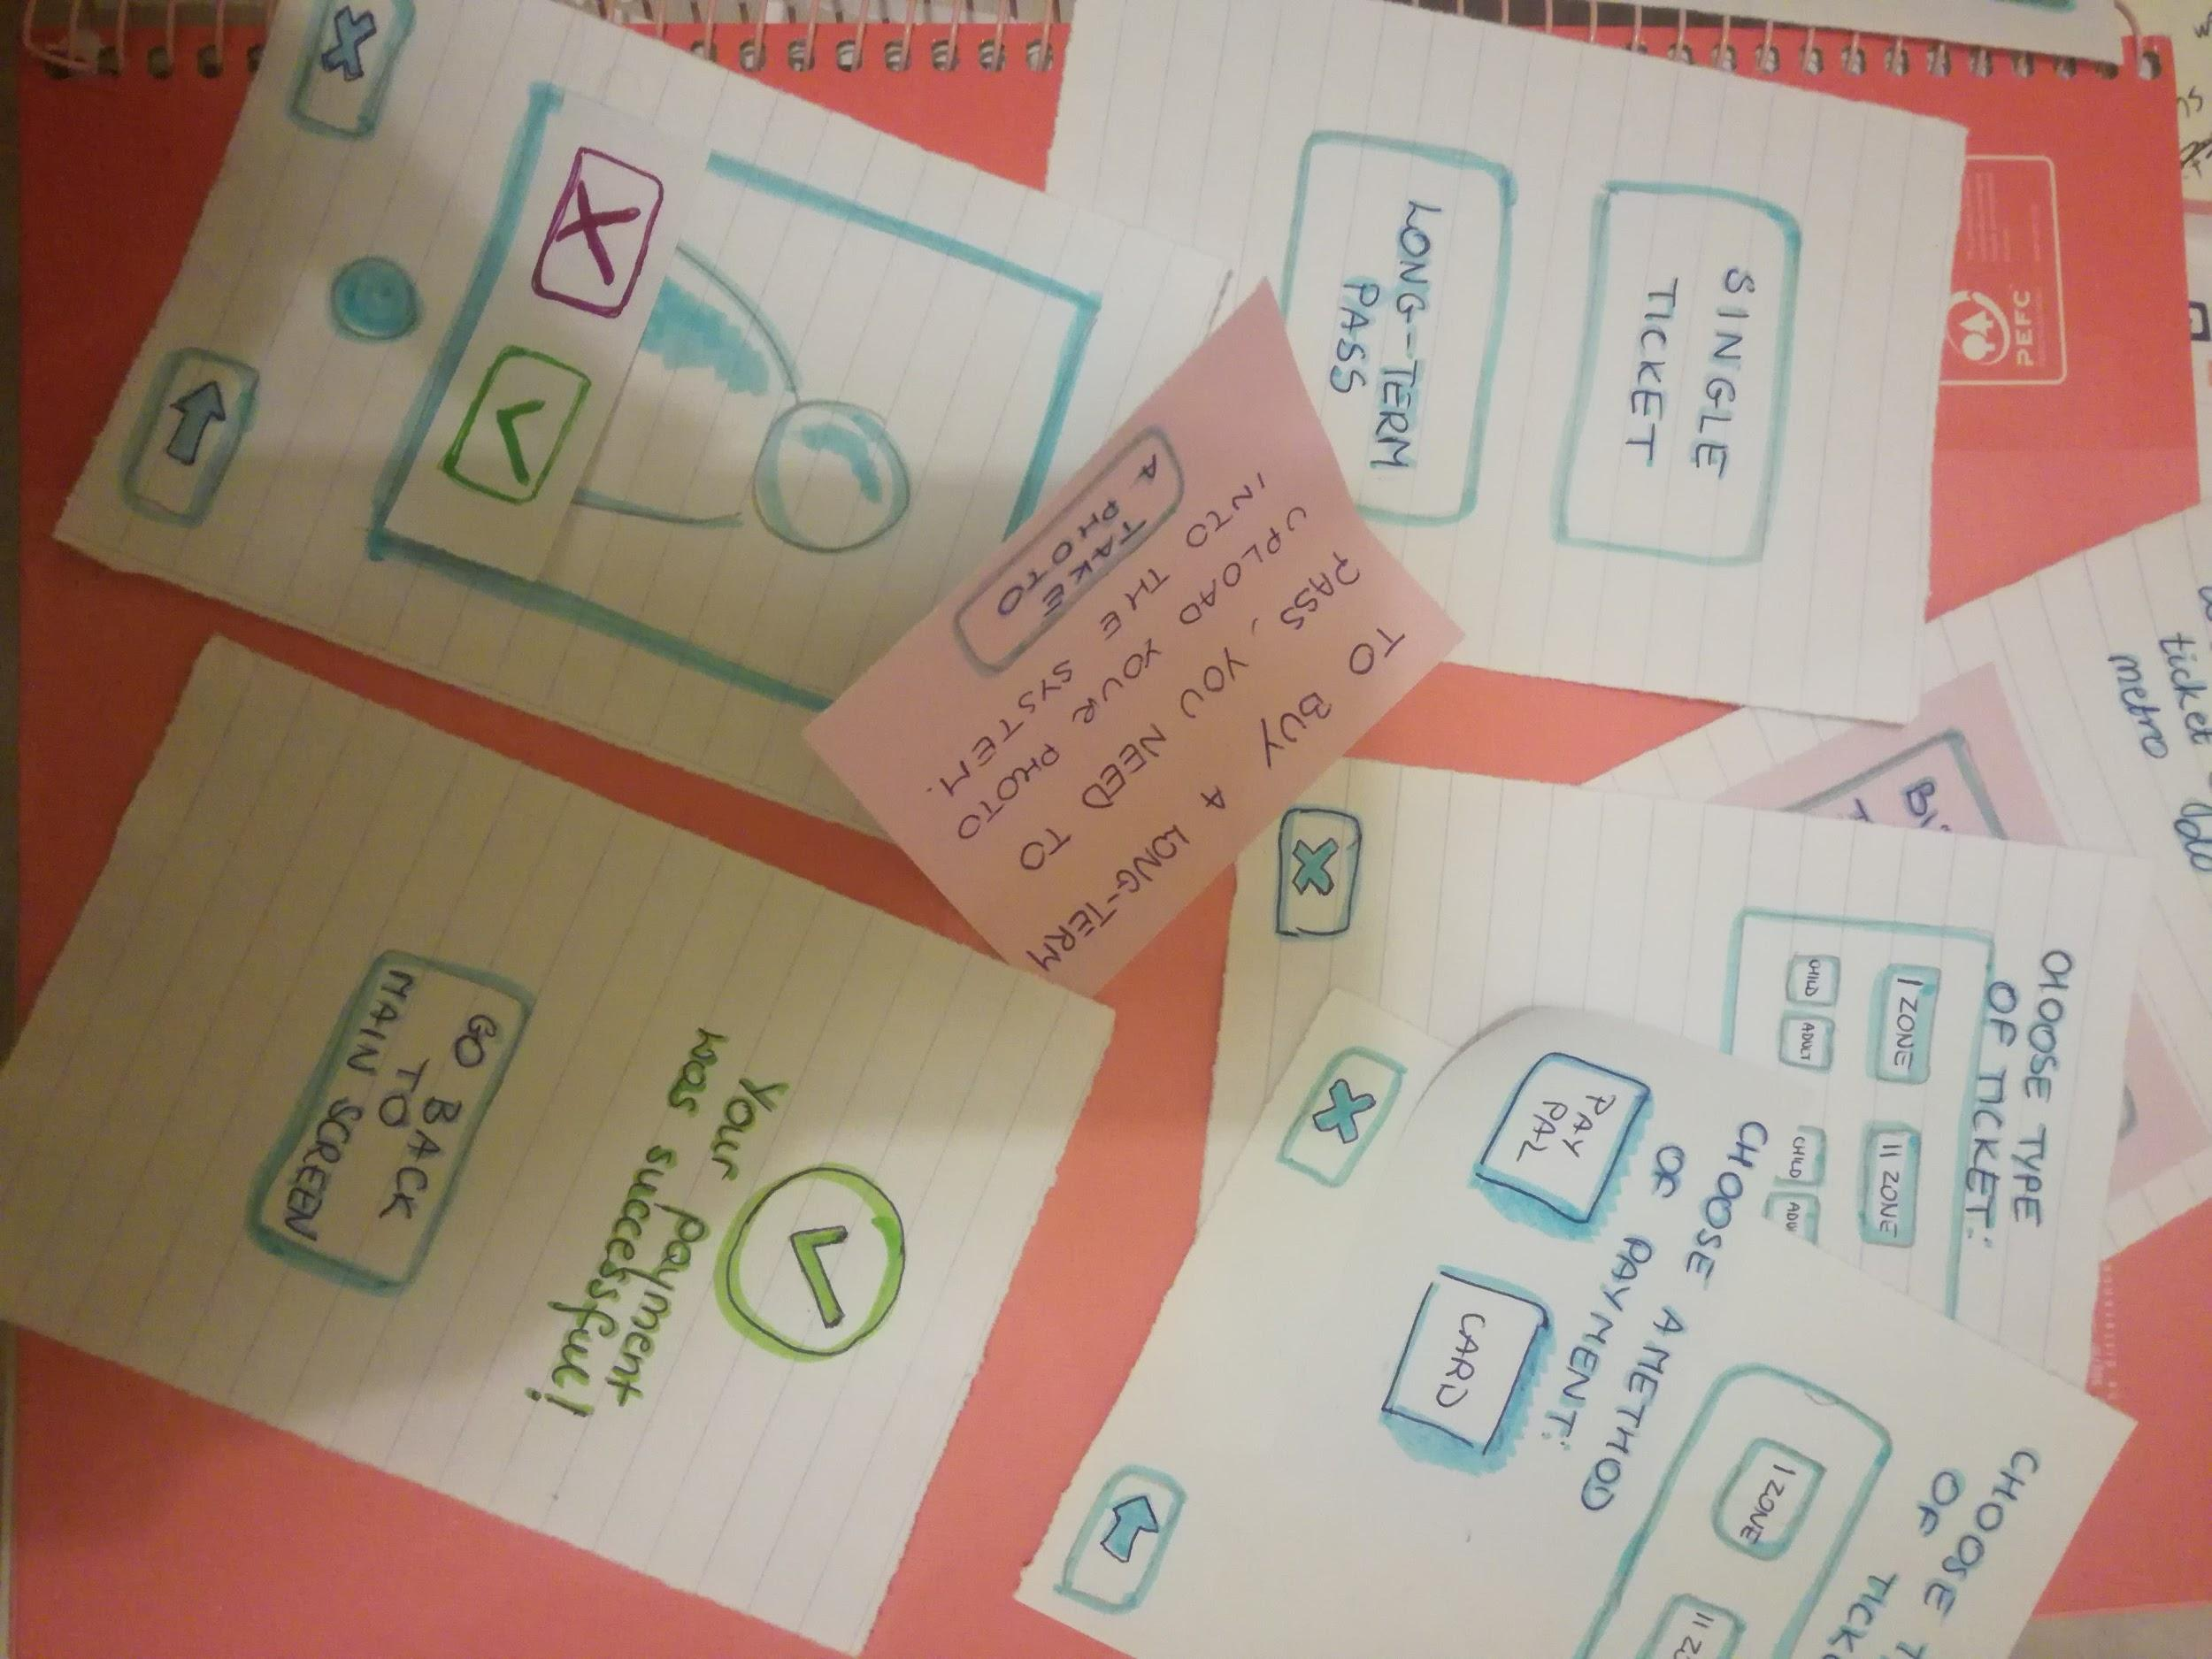 SINGLE
TICKET
LONG-TERM
PASS
PEFC
TO BUY A LONG-TERM
PASS, YOU NEED TO
UPLOAD YOUR PHOTO
INTO THE SYSTEM.
TAKE
A PHOTO
ticket
metro
CHOOSE TYPE
OF TICKET:
I ZONE
II ZONE
CHILD
ADULT
CHILD
CHOOSE A METHOD
OF PAYMENT:
PAY
PAL
CARD
CHOOSE
OF
I ZONE
Your payment
was successful!
GO BACK
TO
MAIN SCREEN